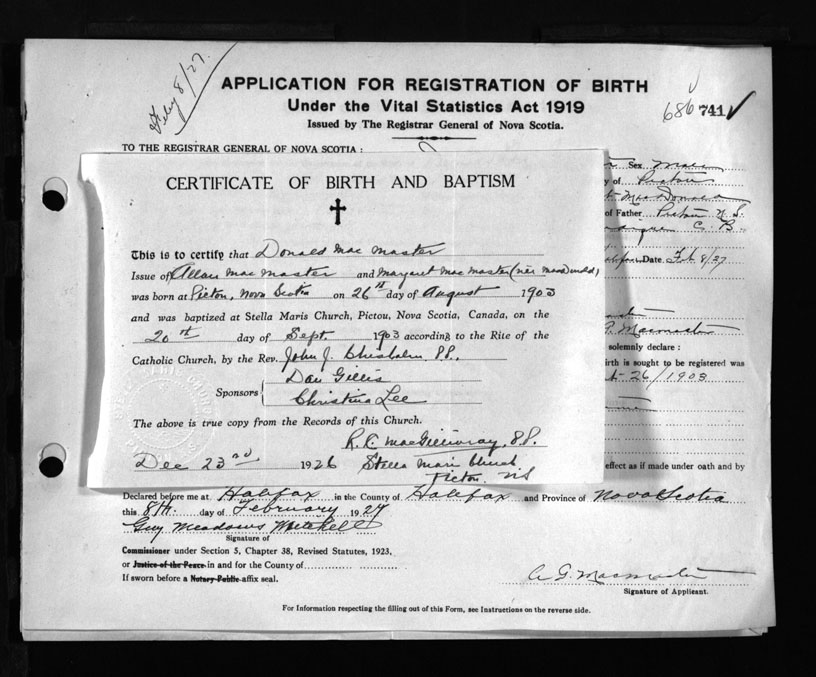 Feby 8/27.
APPLICATION FOR REGISTRATION OF BIRTH
Under the Vital Statistics Act 1919
Issued by The Registrar General of Nova Scotia.
686 741
TO THE REGISTRAR GENERAL OF NOVA SCOTIA:
Sex Male
of Pictou
MacDonald
of Father Pictou N.S.
C. B.
Date Feb 8/27
Macmaster
solemnly declare:
birth is sought to be registered was
26/1903
effect as if made under oath and by
CERTIFICATE OF BIRTH AND BAPTISM
This is to certify that Donald Mac Master
Issue of Allan Mac Master and Margaret Mac Master (née
was born at Pictou, Nova Scotia on 26th day of August 1903
and was baptized at Stella Maris Church, Pictou, Nova Scotia, Canada, on the
20th day of Sept. 1903 according to the Rite of the
Catholic Church, by the Rev. John J. Chisholm P.P.
Dan Gillis
Sponsors
Christina Lee
The above is true copy from the Records of this Church.
R. C. MacGillivray, P.P.
Dec 23rd 1926 Stella Maris Church
Pictou NS
Declared before me at Halifax in the County of Halifax and Province of Nova Scotia
this 8th. day of February 1927
Guy Meadows Mitchell
Signature of
Commissioner under Section 5, Chapter 38, Revised Statutes, 1923,
or Justice of the Peace in and for the County of
If sworn before a Notary Public affix seal.
A G. Macmaster
Signature of Applicant.
For Information respecting the filling out of this Form, see Instructions on the reverse side.